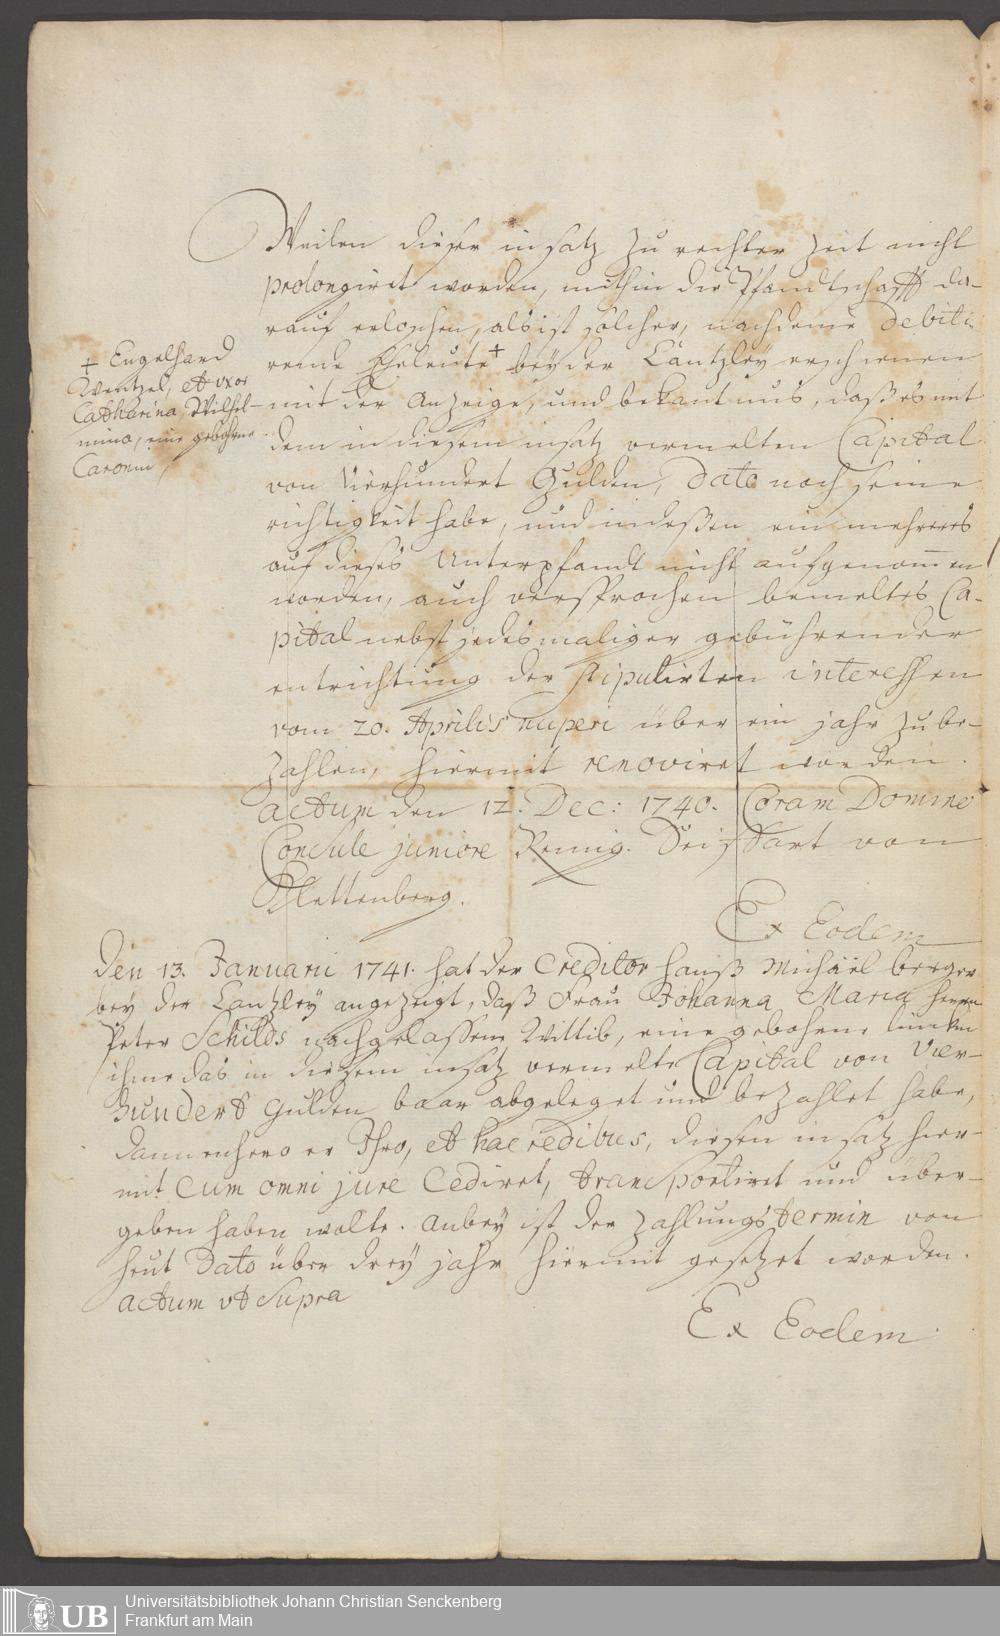 Weilen dieser insatz zu rechter zeit nicht
prolongiret worden, mithin die Pfandtschafft da-
rauf erloschen, als ist solcher, nachdeme debiti-
rende Eheleute + bey der Cantzley erschienen
+ Engelhard
Wentzel, et vxor
Catharina Wilhel-
mina, eine gebohrne
Caronin,
mit der Anzeige, und bekantnus, daß es mit
dem in diesem insatz vermelten Capital
von Vierhundert Gulden, dato noch seine
richtigkeit habe, und indeßen ein mehreres
auf dieses Unterpfandt nicht aufgenom̄en
worden, auch versprochen bemeltes Ca-
pital nebst jedesmaliger gebührender
entrichtung der stipulirten interessen
vom 20. Aprilis nuperi über ein jahr zu be-
zahlen, hiermit renoviret worden.
actum den 12. Dec: 1740. Coram Domino
Consule juniore Remig. Seiffart von
Klettenberg.
Ex Eodem
Den 13. Januarii 1741. hat der Creditor Hanß Michael Berger
bey der Cantzley angezeigt, daß Frau Johanna Maria Herrn
Peter Schilds nachgelassene Wittib, eine gebohrne
ihme das in diesem insatz vermelte Capital von Vier-
hundert Gulden baar abgeleget und bezahlet habe,
dannenhero er Ihro, et haeredibus, diesen insatz hier-
mit cum omni jure cediret, transportiret und über-
geben haben wolte. Anbey ist der Zahlungs termin von
heut dato über drey jahr hiermit gesetzet worden.
actum vt supra
Ex Eodem.
UB
Universitätsbibliothek Johann Christian Senckenberg
Frankfurt am Main